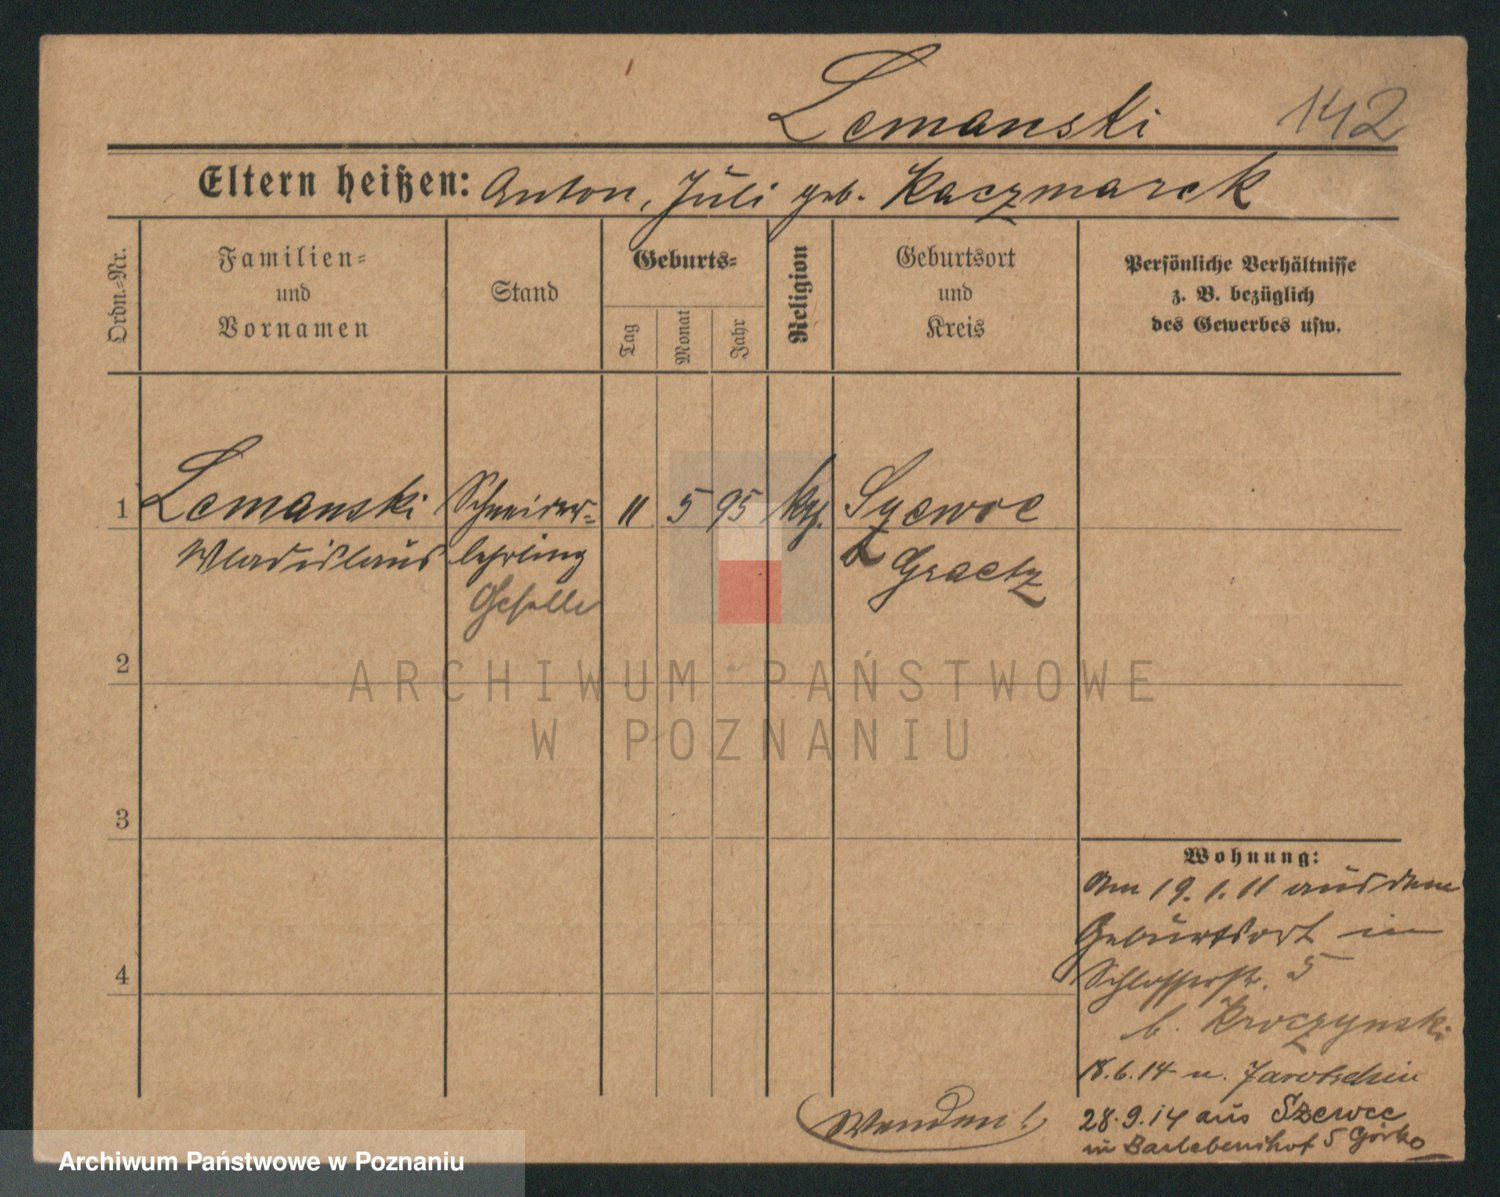 Lemanski 142
Eltern heißen: Anton, Juli geb. Kaczmarek
Ordn.=Nr.
Familien=
und
Vornamen
Stand
Geburts=
Tag
Monat
Jahr
Religion
Geburtsort
und
Kreis
Persönliche Verhältnisse
z. B. bezüglich
des Gewerbes usw.
1 Lemanski Schneider= 11 5 95 kth. Szewce
Wladislaus lehrling Graetz
Geselle
2
3
4
ARCHIWUM PAŃSTWOWE
W POZNANIU
Wohnung:
Am 19.1.11 aus dem
Geburtsort in
Schlosserstr. 5
b. Kroczynski
18.6.14 n. Jarotschin
28.9.14 aus Szewce
in Bartebenshof 5 Górko
Wenden!
Archiwum Państwowe w Poznaniu